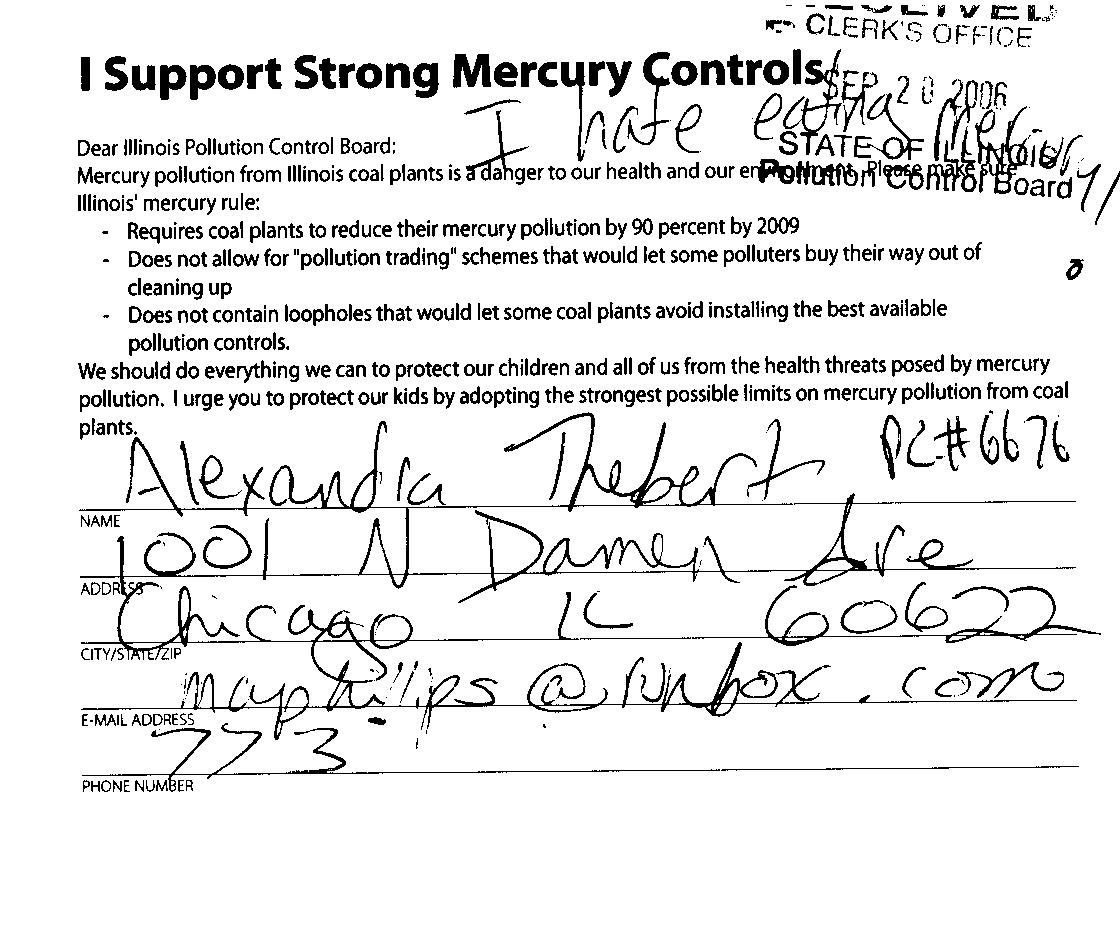 RECEIVED
CLERK'S OFFICE
I Support Strong Mercury Controls
SEP 20 2006
I hate eating Mercury!
STATE OF ILLINOIS
Pollution Control Board
Dear Illinois Pollution Control Board:
Mercury pollution from Illinois coal plants is a danger to our health and our environment. Please make sure
Illinois' mercury rule:
- Requires coal plants to reduce their mercury pollution by 90 percent by 2009
- Does not allow for "pollution trading" schemes that would let some polluters buy their way out of
cleaning up
- Does not contain loopholes that would let some coal plants avoid installing the best available
pollution controls.
We should do everything we can to protect our children and all of us from the health threats posed by mercury
pollution. I urge you to protect our kids by adopting the strongest possible limits on mercury pollution from coal
plants.
PC#6676
Alexandra Thebert
NAME
1001 N Damen Ave
ADDRESS
Chicago IL 60622
CITY/STATE/ZIP
mayphillips@runbox.com
E-MAIL ADDRESS
773
PHONE NUMBER